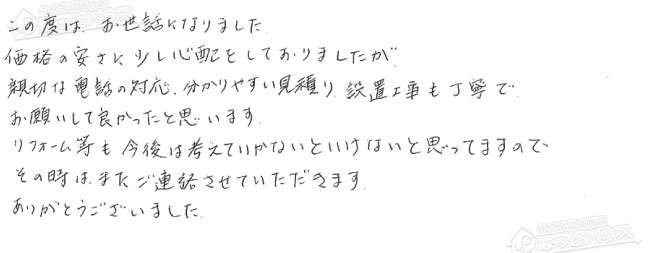 この度は、お世話になりました.
価格の安さに少し心配をしておりましたが.
親切な電話の対応、分かりやすい見積り、設置工事も丁寧で.
お願いして良かったと思います.
リフォーム等も今後は考えていかないといけないと思ってますので、
その時は、またご連絡させていただきます.
ありがとうございました.